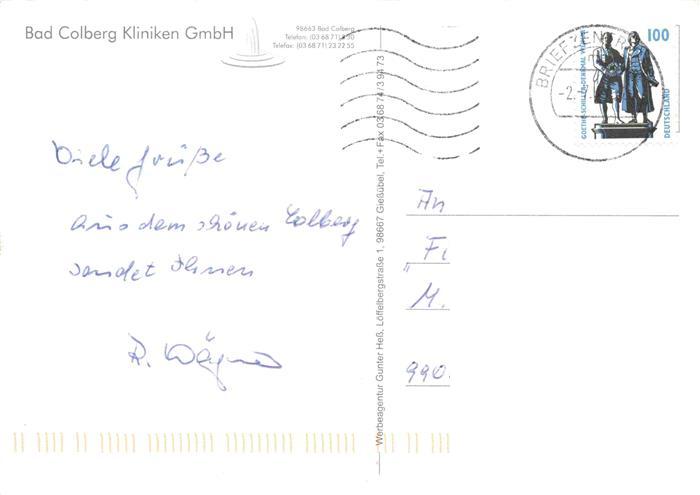 Bad Colberg Kliniken GmbH
98663 Bad Colberg
Telefon: (03 68 71) 2 30
Telefax: (03 68 71) 23 22 55
BRIEFZENTR
-2.-
100
GOETHE-SCHILLER-DENKMAL WEIMAR
DEUTSCHLAND
Viele Grüße
aus dem schönen Colberg
sendet Ihnen
R. Wagner
Werbeagentur Gunter Heß, Löffelbergstraße 1, 98667 Gießübel, Tel.+Fax 03 68 74/3 94 73
An
„Fi
M.
990.